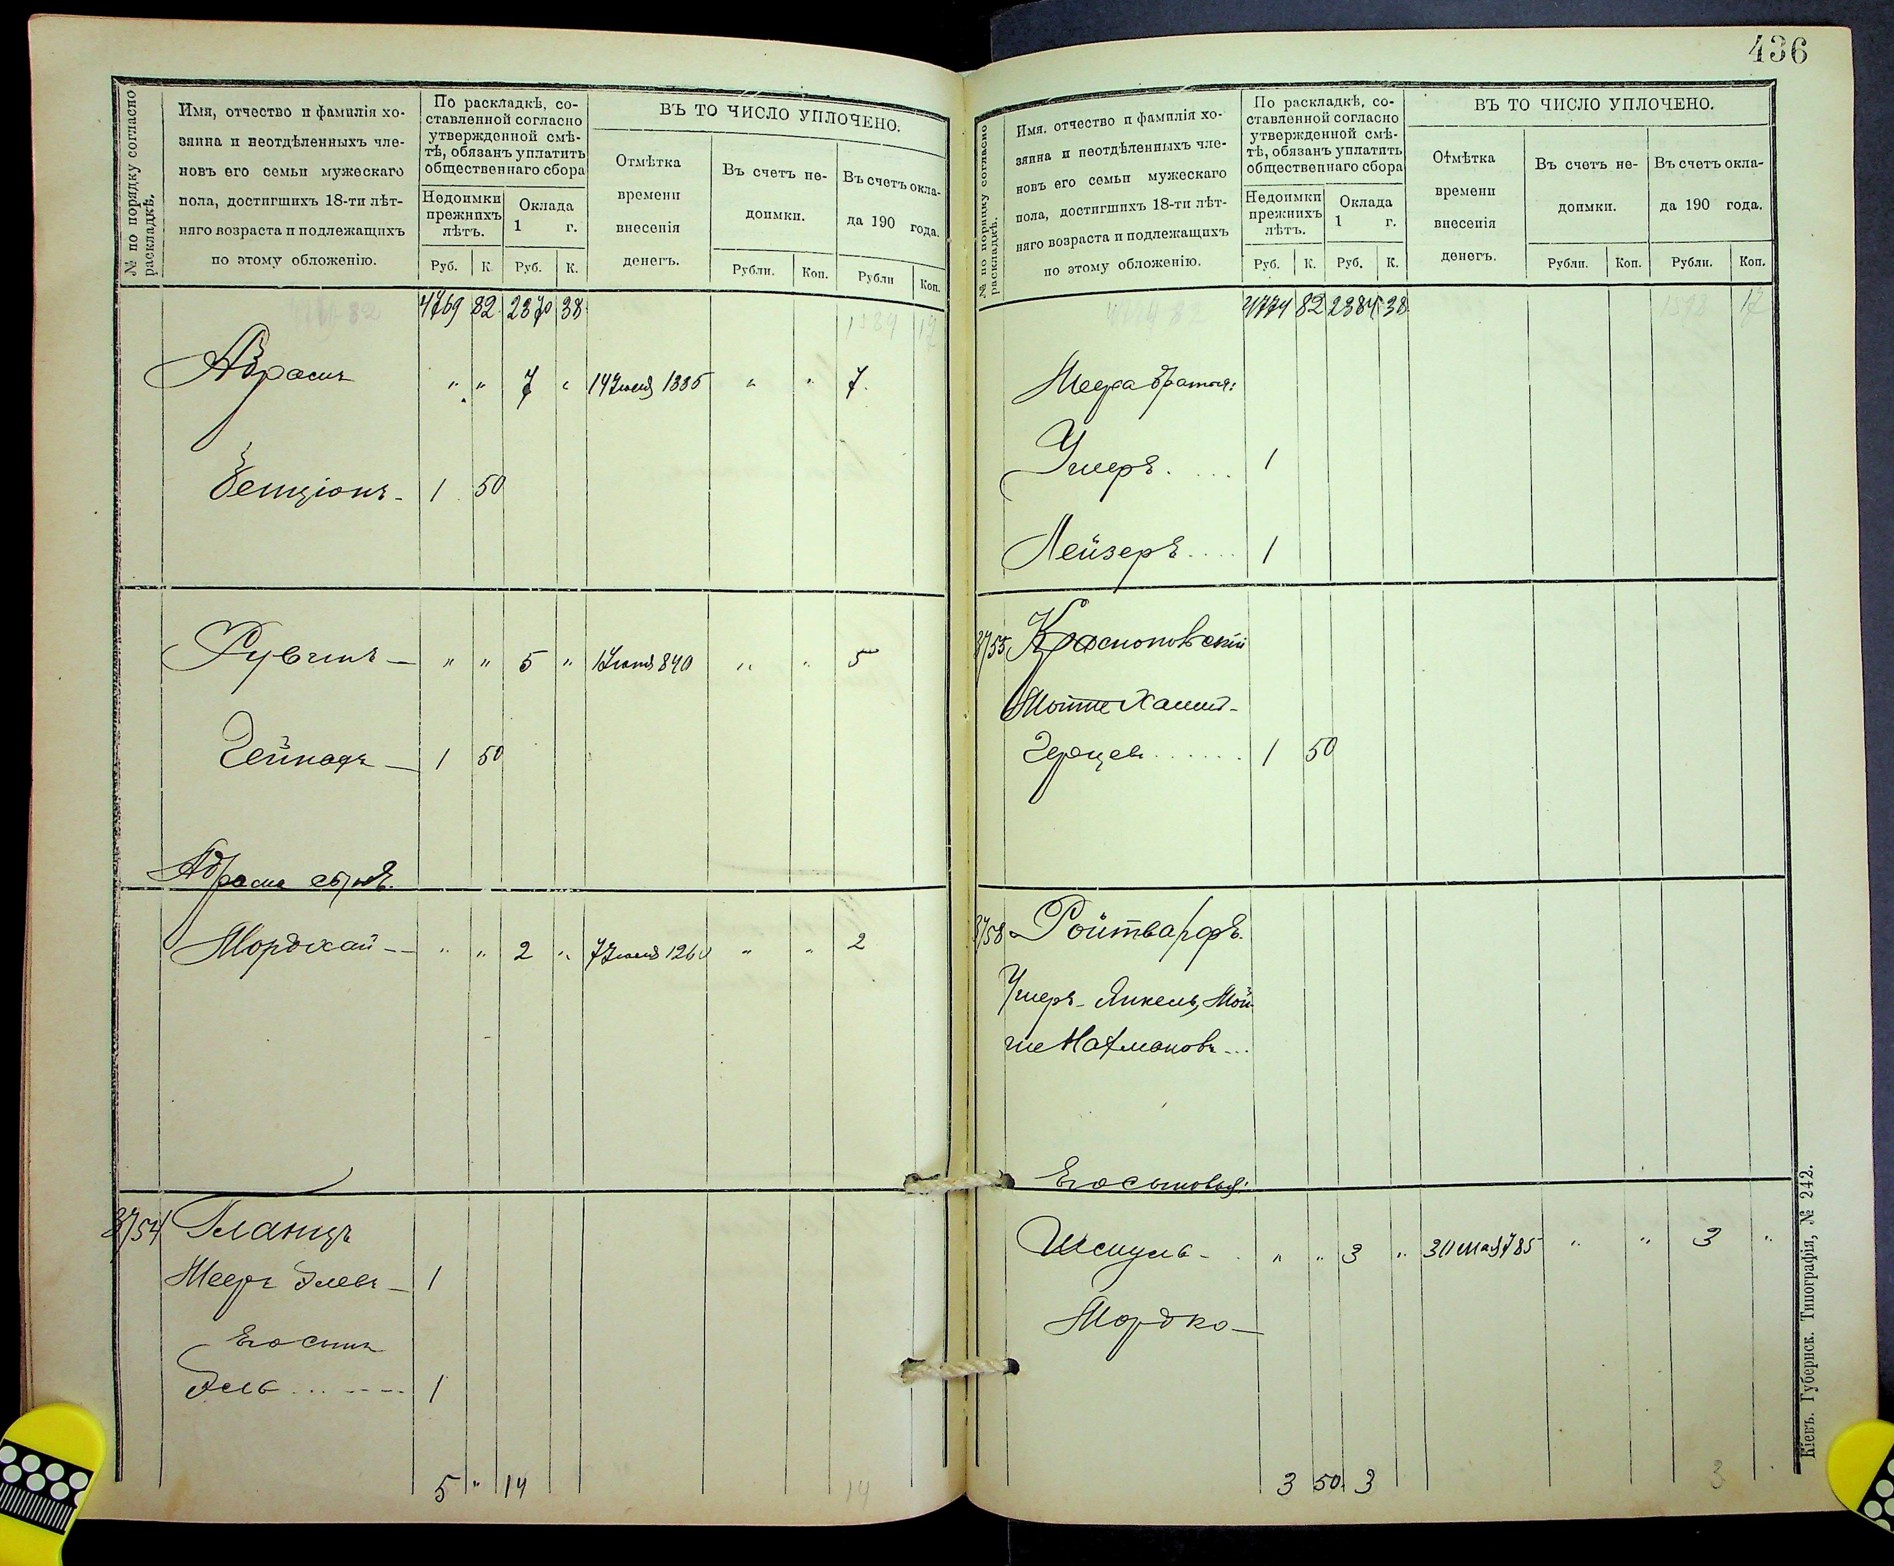 436
№ по порядку согласно раскладкѣ.
Имя, отчество и фамилія хо-
зяина и неотдѣленныхъ чле-
новъ его семьи мужескаго
пола, достигшихъ 18-ти лѣт-
няго возраста и подлежащихъ
по этому обложенію.
По раскладкѣ, со-
ставленной согласно
утвержденной смѣ-
тѣ, обязанъ уплатить
общественнаго сбора
Недоимки
прежнихъ
лѣтъ.
Оклада
1 г.
Руб. К. Руб. К.
ВЪ ТО ЧИСЛО УПЛОЧЕНО.
Отмѣтка
времени
внесенія
денегъ.
Въ счетъ не-
доимки.
Рубли. Коп.
Въ счетъ окла-
да 190 года.
Рубли Коп.
4769 82 2370 38
Абрамъ " " 7 " 14 Іюня 1335 " " 7.
Бенціонъ - 1 50
Рувинъ — " " 5 " 1 Іюня 840 " " 5
Гейнахъ — 1 50
Абрама сынъ.
Мордхай -- " " 2 " 7 Іюня 1260 " " 2
3754 Гланцъ
Мееръ Элевъ — 1
Его сынъ
Эль ... ---- 1
5 " 14 14
№ по порядку согласно раскладкѣ.
Имя, отчество и фамилія хо-
зяина и неотдѣленныхъ чле-
новъ его семьи мужескаго
пола, достигшихъ 18-ти лѣт-
няго возраста и подлежащихъ
по этому обложенію.
По раскладкѣ, со-
ставленной согласно
утвержденной смѣ-
тѣ, обязанъ уплатить
общественнаго сбора
Недоимки
прежнихъ
лѣтъ.
Оклада
1 г.
Руб. К. Руб. К.
ВЪ ТО ЧИСЛО УПЛОЧЕНО.
Отмѣтка
времени
внесенія
денегъ.
Въ счетъ не-
доимки.
Рубли. Коп.
Въ счетъ окла-
да 190 года.
Рубли. Коп.
4774 82 2384 38 1398 17
Меера братья:
Ушеръ . . . . 1
Лейзеръ .... 1
3755 Краснопольскій
Мошко Хаимъ-
Герцевъ ....... 1 50
3758 Ройтварфъ.
Ушеръ - Янкель, Мой-
ше Нахмановъ ...
Его сыновья:
Шмуль - . " " 3 " 30 мая 785 " " 3 "
Мордко —
3 50 3 3
Кіевъ. Губернск. Типографія, № 242.